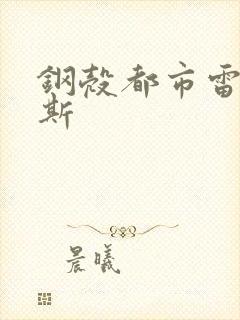 鋼殼都市雷
斯
晨曦